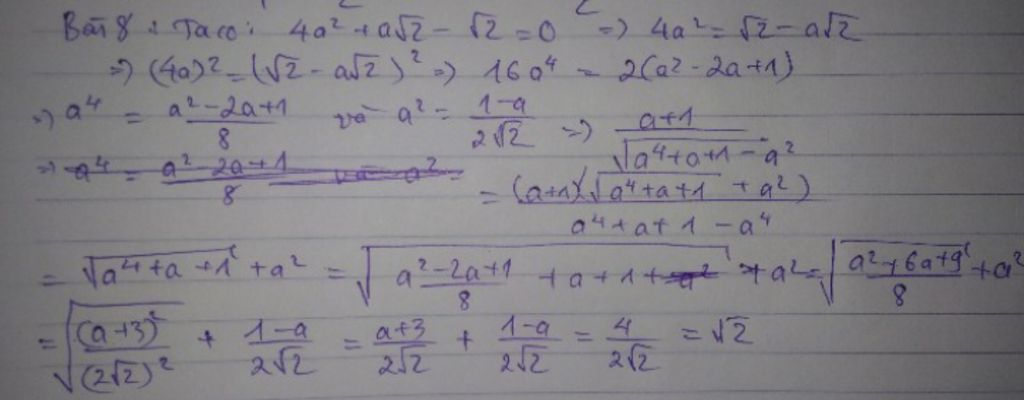 Bài 8 : Ta có : 4a² + a√2 - √2 = 0 => 4a² = √2 - a√2
=> (4a)² = (√2 - a√2)² => 16a⁴ = 2(a² - 2a + 1)
=> a⁴ = (a² - 2a + 1)/8 và a² = (1-a)/(2√2) => (a+1)/(√(a⁴+a+1) - a²)
=> a⁴ = (a² - 2a + 1)/8 và a² =
= (a+1)(√(a⁴+a+1) + a²)/(a⁴+a+1-a⁴)
= √(a⁴+a+1) + a² = √((a²-2a+1)/8 + a + 1 + a²) + a² = √((a²+6a+9)/8) + a²
= √((a+3)²/(2√2)²) + (1-a)/(2√2) = (a+3)/(2√2) + (1-a)/(2√2) = 4/(2√2) = √2